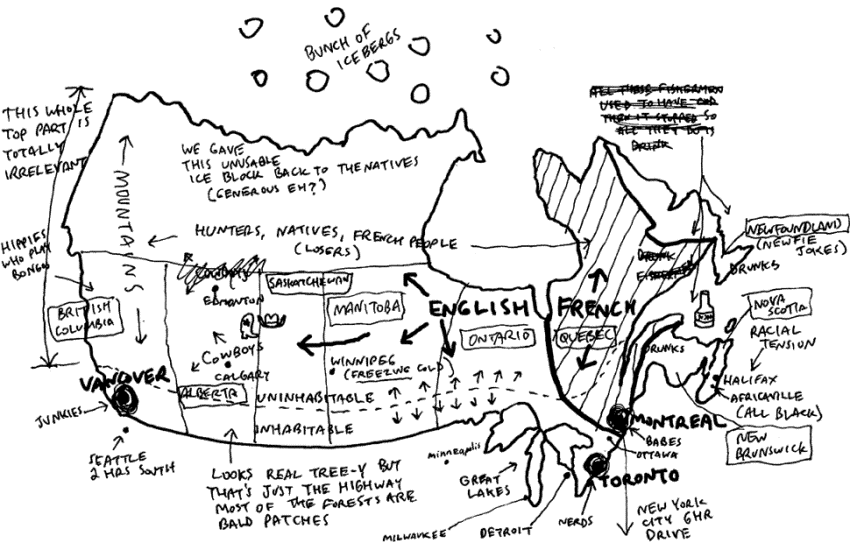 BUNCH OF
ICEBERGS
ALL THESE FISHERMEN
USED TO HAVE COD
THEN IT STOPPED SO
ALL THEY DO IS
DRINK
THIS WHOLE
TOP PART IS
TOTALLY
IRRELEVANT
WE GAVE
THIS UNUSABLE
ICE BLOCK BACK TO THE NATIVES
(GENEROUS EH?)
MOUNTAINS
HUNTERS, NATIVES, FRENCH PEOPLE
(LOSERS)
HIPPIES
WHO PLAY
BONGO
NEWFOUNDLAND
(NEWFIE
JOKES)
DRUNKS
COWBOYS
EDMONTON
SASKATCHEWAN
MANITOBA
BRITISH
COLUMBIA
ENGLISH
FRENCH
ONTARIO
QUEBEC
NOVA
SCOTIA
RACIAL
TENSION
DRUNKS
COWBOYS
CALGARY
WINNIPEG
(FREEZING COLD)
HALIFAX
AFRICVILLE
(ALL BLACK)
VANOVER
ALBERTA
UNINHABITABLE
INHABITABLE
JUNKIES
MONTREAL
BABES
OTTAWA
NEW
BRUNSWICK
SEATTLE
2 HRS SOUTH
LOOKS REAL TREE-Y BUT
THAT'S JUST THE HIGHWAY
MOST OF THE FORESTS ARE
BALD PATCHES
minneapolis
GREAT
LAKES
TORONTO
MILWAUKEE
DETROIT
NERDS
NEW YORK
CITY 6HR
DRIVE